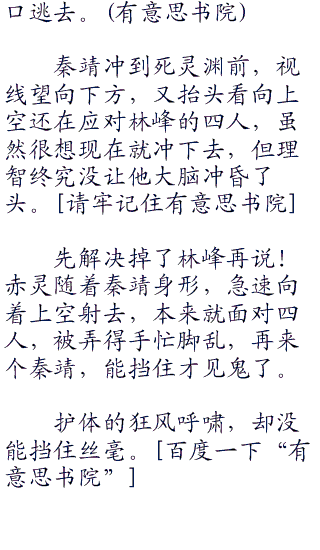 口逃去。(有意思书院)
秦靖冲到死灵渊前，视
线望向下方，又抬头看向上
空还在应对林峰的四人，虽
然很想现在就冲下去，但理
智终究没让他大脑冲昏了
头。[请牢记住有意思书院]
先解决掉了林峰再说！
赤灵随着秦靖身形，急速向
着上空射去，本来就面对四
人，被弄得手忙脚乱，再来
个秦靖，能挡住才见鬼了。
护体的狂风呼啸，却没
能挡住丝毫。[百度一下“有
意思书院”]